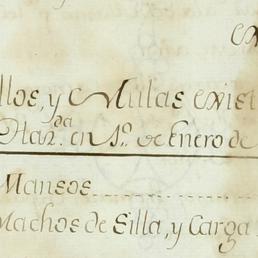 llos, y Mulas exist
Haz.da en 1.o de Enero de
Mansos
Machos de Silla, y Carga